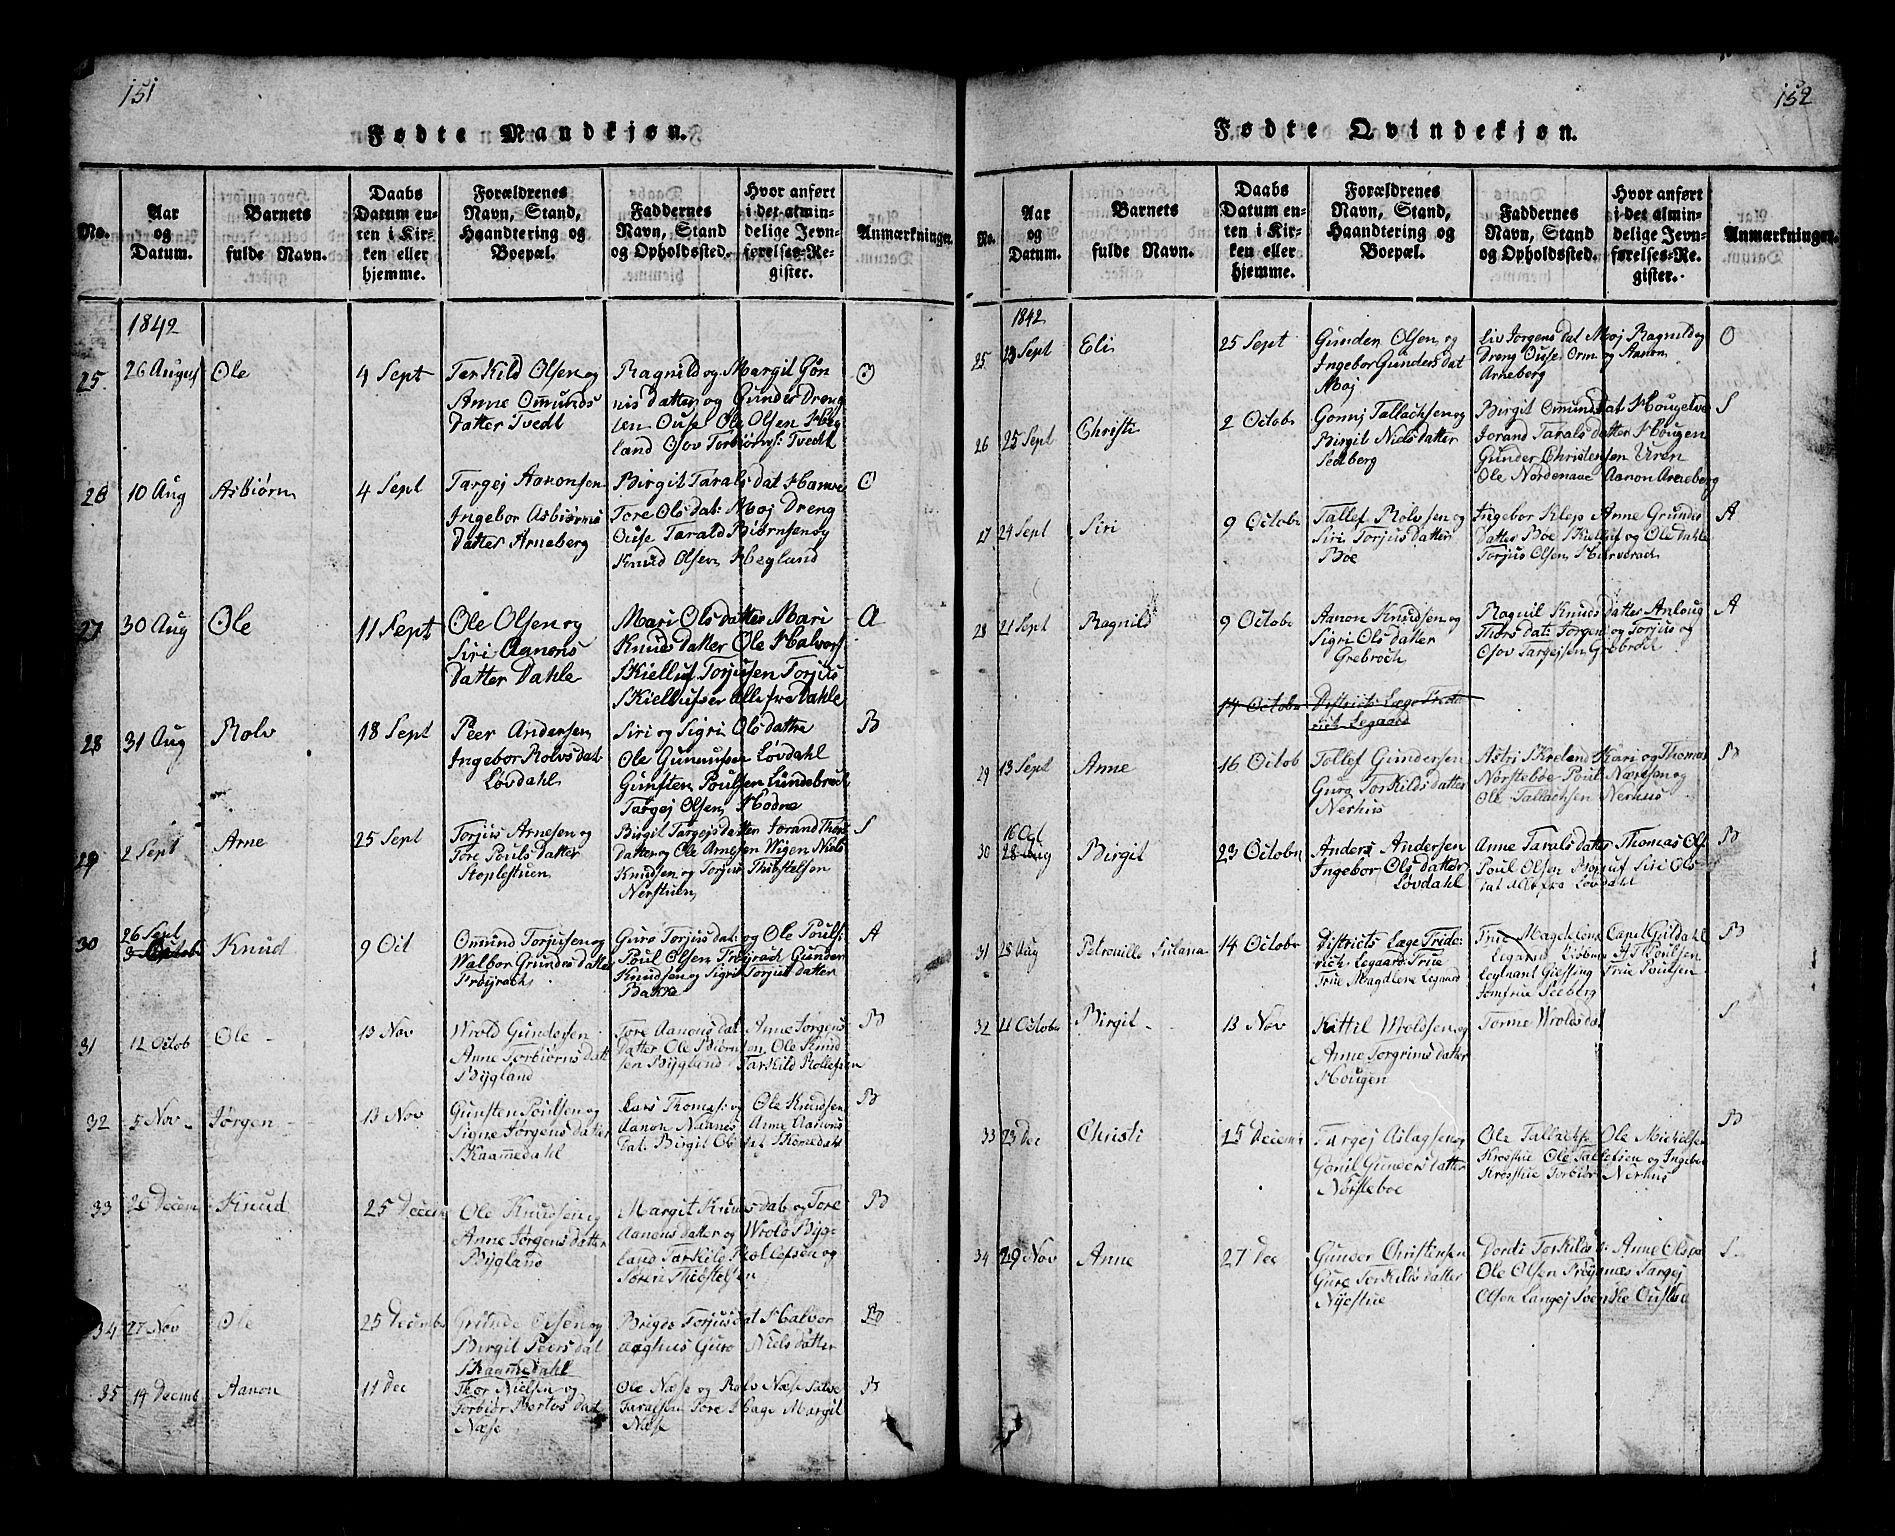 151
Fødte Mandkjøn.
No.
Aar
og
Datum.
Barnets
fulde Navn.
Daabs
Datum en-
ten i Kir-
ken eller
hjemme.
Forældrenes
Navn, Stand,
Haandtering og
Boepæl.
Faddernes
Navn, Stand
og Opholdssted.
Hvor anført
i det almin-
delige Jevn-
førelses-Re-
gister.
Anmærkninger.
1842
25. 26 August Ole 4 Sept
Terkild Olsen og
Anne Omunds
datter Tvedt
Ragnild og Margit Gøn
nis datter og Gunder Dreng
sen Ouse Ole Olsen Heg
land Osov Torbiørns: Tvedt
O
26 10 Aug Asbiørn 4 Sept
Targej Aanonsen
Ingebor Asbiørns
datter Arneberg
Birgit Tarals dat Hamre
Tore Ols dat: Moj Dreng
Ouse Tarald Biørnsen og
Knud Olsen Hegland
O
27 30 Aug Ole 11 Sept
Ole Olsen og
Siri Aanons
Datter Dahle
Mari Ols datter Mari
Knuds datter Ole Halvors
Skielluf Torjusen Torjus
Skiellufser alle fra Dahle
A
28 31 Aug Rolv 18 Sept
Peer Andersen
Ingebor Rolvs dat
Løvdahl
Siri og Sigri Ols datre
Ole Gunnufsen Løvdahl
Gunsten Poulsen Lundebroch
Targej Olsen Hodne
B
29 2 Sept Arne 25 Sept
Torjus Arnesen og
Tore Pouls datter
Stoplestuen
Birgit Targejs datter Jorand Thors
datter og Ole Arnesen Wigen Niels
Knudsen og Torjus Thiostelsen
Nerstuen
S
30 26 Sept
Knud 9 Oct
Omund Torjusen og
Walbor Grundes datter
Frøijrach
Guro Torjus dat: og Ole Pouls:
Poul Olsen Frøijrach Gunder
Knudsen og Sigri Torjus datter
Bakke
A
31 12 Octob Ole 13 Nov
Wrold Gundersen
Anne Torbiørns datt
Bijgland
Tore Aanons dat Anne Jørgens
datter Ole Biørnsen Ole Knud
sen Bijgland Tarkild Rollefsen
B
32 5 Nov Jørgen 13 Nov
Gunsten Poulsen og
Signe Jørgens datter
Skaamedahl
Lars Thomas: og Ole Knudsen
Aanon Naanes Anne Aanons
dat: Birgit Ols dat Skomedahl
B
33 20 Decem Knud 25 Decem
Ole Knudsen og
Anne Jørgens datter
Bijgland
Margit Knuds dat og Tore
Aanons datter og Wrold Bijg-
land Tarkild Rollefsen og
Søren Thiostelsen
B
34 27 Nov Ole 25 Decembr
Grunde Olsen og
Birgit Peers dat
Skaamedahl
Brigde Torjus dat Halvor
aaghus Guro Niels datter
B
35 14 Decemb Aanon 11 Dec
Thor Nielsen og
Torbiør Bertos dat
Næse
Ole Næse og Rolv Næse Salve
Taraldsen Tore Hage Margit
Næse
B
152
Fødte Qvindekjøn.
No.
Aar
og
Datum.
Barnets
fulde Navn.
Daabs
Datum en-
ten i Kir-
ken eller
hjemme.
Forældrenes
Navn, Stand,
Haandtering og
Boepæl.
Faddernes
Navn, Stand
og Opholdssted.
Hvor anført
i det almin-
delige Jevn-
førelses-Re-
gister.
Anmærkninger.
1842
25 23 Sept Eli 25 Sept
Gunden Olsen og
Ingebor Gunders dat
Moj
Liv Jorgens dat Moj Ragnild og
Dreng Ouse Orm og Aanon
Arneberg
O
26 25 Sept Christi 2 Octobr
Gonnij Tallachsen og
Birgit Niels datter
Sedberg
Birgit Omunds dat Hougetve
Jorand Tarals datter Hougen
Gunder Christensen Uren
Ole Nordenaae Aanon Arneberg
S
27 24 Sept Siri 9 Octobr
Tallef Rolvsen og
Siri Torjus datter
Boe
Ingebor Klep Anne Grundes
datter Boe Skielluf og Ole Dahle
Torjus Olsen
A
28 21 Sept Ragnild 9 Octobr
Aanon Knudsen og
Sigri Ols datter
Grebroch
Ragnil Knuds datter Anlaug
Thors dat: Torgen og Torjus og
Osov Targejsen Grebroch
A
14 Octobr Districts Læge Frede
rich Legaard
29 13 Sept Anne 16 Octob
Tollef Gundersen
Guro Torkilds datter
Nerhus
Astri Skreland Kari og Thomas
Norsteboe Poul Næsesen og
Ole Tallachsen Nerhus
B
30 16 Oct
28 Aug Birgit 23 Octobr
Anders Andersen
Ingebor Ols datter
Løvdahl
Anne Tarals datter Thomas Ols
Poul Olsen Siri Ols
dat Alle fra Løvdahl
B
31 28 Aug Petronille Juliana 14 Octobr
Districts Læge Frede:
rich Legaard Frue
Frue Magdlene Legaard
Frue Magdelone Capt Guldahl
Legaard
Leytnant Giessing Frue Poulsen
Jomfrue Seeberg
B
32 11 Octobr Birgit 13 Nov
Kittil Wroldsen og
Anne Torgrims datter
Hougen
Torme Wrolds dat
S
33 23 Dec Christi 25 Decem
Targej Aslagsen og
Gonil Gunders datter
Nørsteboe
Ole Tallachs. Ole Mickelsen
Krosstue Ole Tallefsen og Ingebor
Krosstue Torbiør Nerhus
B
34 29 Nov Anne 27 Dec
Gunder Christensen
Guro Torkilds datter
Nijestue
Dordi Torkilds d: Anne Ols
Ole Olsen Frøijsnæs Targej
Olsen Langej Svenke Oustad
S